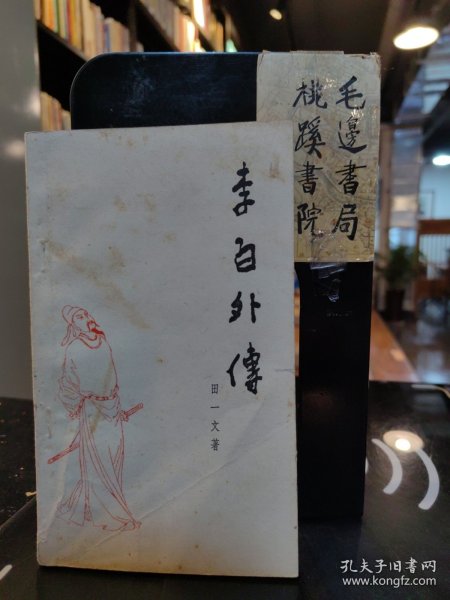 李白外傳
田一文著
毛邊書局
桃蹊書院
孔夫子旧书网
www.kongfz.com